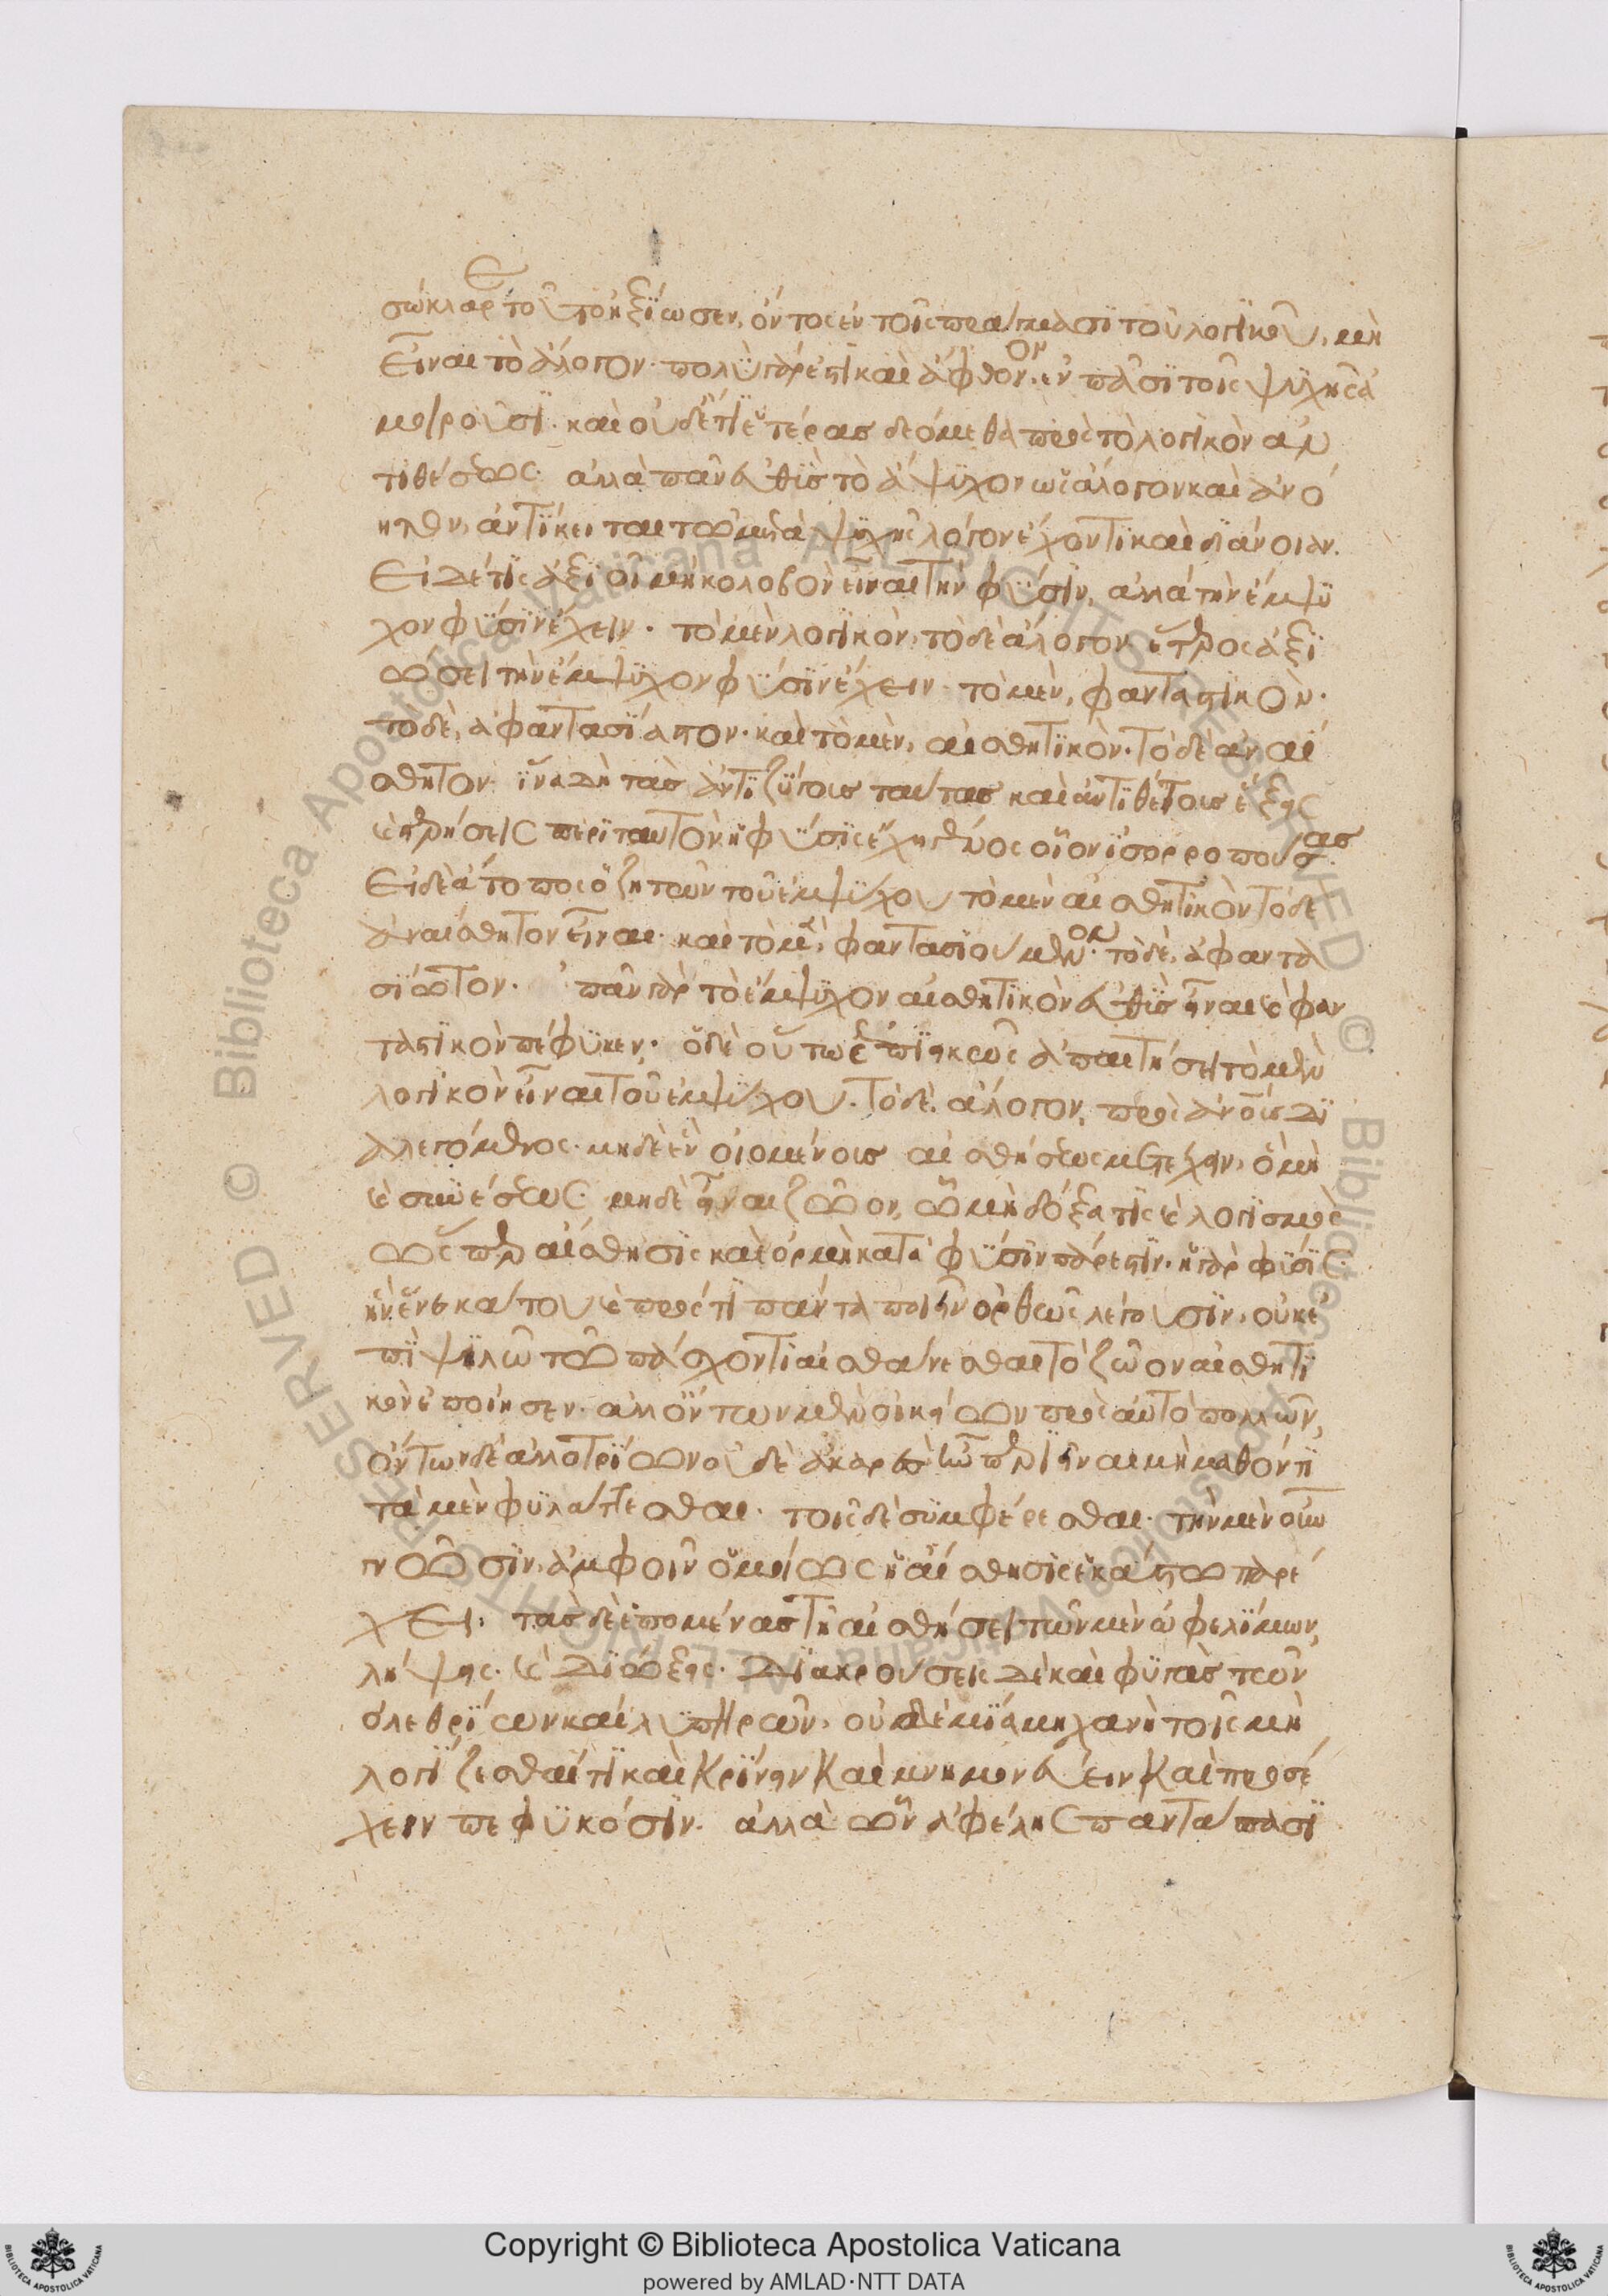 σώκλαρε τοῦτο ἠξίωσεν, ὄντος ἐν τοῖς πράγμασι τοῦ λογικοῦ, μὴ
εἶναι τὸ ἄλογον· πολὺ γάρ ἐστι καὶ ἄφθονον ἐν πᾶσι τοῖς ψυχῆς ἀ
μοιροῦσι· καὶ οὐδέ τι ἑτέρας δεόμεθα πρὸς τὸ λογικὸν ἀν
τιθέσεως· ἀλλὰ πᾶν εὐθὺς τὸ ἄψυχον ὡς ἄλογον καὶ ἀνό
ητον, ἀντίκειται τῶ μετὰ ψυχῆς λόγον ἔχοντι καὶ διάνοιαν.
Εἰ δέ τις ἀξιοῖ μὴ κολοβὸν εἶναι τὴν φύσιν, ἀλλὰ τὴν ἔμψυ
χον φύσιν ἔχειν· τὸ μὲν λογικὸν, τὸ δὲ ἄλογον· ἕτερος ἀξι
ώσει τὴν ἔμψυχον φύσιν ἔχειν· τὸ μὲν, φανταστικὸν·
τὸ δὲ, ἀφαντασίαστον· καὶ τὸ μὲν, αἰσθητικὸν· τὸ δὲ ἀναί
σθητον· ἵνα δὴ τὰς ἀντιζύγους ταύτας καὶ ἀντιθέτους ἕξεις
καὶ στερήσεις περὶ ταυτὸν ἡ φύσις ἔχη γένος οἷον ἰσορροπούσας·
Εἰ δὲ ἄτοπος ὁ ζητῶν τοῦ ἐμψύχου τὸ μὲν αἰσθητικὸν τὸ δὲ
ἀναίσθητον εἶναι· καὶ τὸ μὲν, φαντασιούμενον· τὸ δὲ, ἀφαντα
σίωτον· πᾶν γὰρ τὸ ἔμψυχον αἰσθητικὸν εὐθὺς εἶναι καὶ φαν
ταστικὸν πέφυκεν· οὐδὲ οὕτως ἐπιεικῶς ἀπαιτήσει τὸ μὲν
λογικὸν εἶναι τοῦ ἐμψύχου· τὸ δὲ, ἄλογον, πρὸς ἀνθρώπους δι
αλεγόμενος· μηδὲν οἰομένους αἰσθήσεως μετέχειν, ὃ μὴ
καὶ συνέσεως· μηδὲ εἶναι ζῶον, ᾧ μὴ δόξα τις καὶ λογισμὸς
ὥσπερ αἴσθησις καὶ ὁρμὴ κατὰ φύσιν πάρεστιν· ἡ γὰρ φύσις
ἣν ἕνεκά του καὶ πρός τι πάντα ποιεῖν ὀρθῶς λέγουσιν, οὐκ ἐ
πὶ ψιλῶ τῶ πάσχοντι αἰσθάνεσθαι τὸ ζῶον αἰσθητι
κὸν ἐποίησεν· ἀλλ' ὄντων μὲν οἰκείων πρὸς αὐτὸ πολλῶν,
ὄντων δὲ ἀλλοτρίων οὐδὲ ἀκαρὲς ἦν περιεῖναι μὴ μαθόντι
τὰ μὲν φυλάττεσθαι· τοῖς δὲ συμφέρεσθαι· τὴν μὲν οὖν
γνῶσιν, ἀμφοῖν ὁμοίως ἡ αἴσθησις ἑκάστω παρέ
χει· τὰς δὲ ἑπομένας τῆ αἰσθήσει τῶν μὲν ὠφελίμων,
λήψεις· καὶ διώξεις· διακρούσεις δὲ καὶ φυγὰς τῶν
ὀλεθρίων καὶ λυπηρῶν, οὐδεμία μηχανὴ τοῖς μὴ
λογίζεσθαί τι καὶ κρίνειν καὶ μνημονεύειν καὶ προσέ
χειν πεφυκόσιν· ἀλλὰ ὧν ἀφέλης πάντα πᾶσι